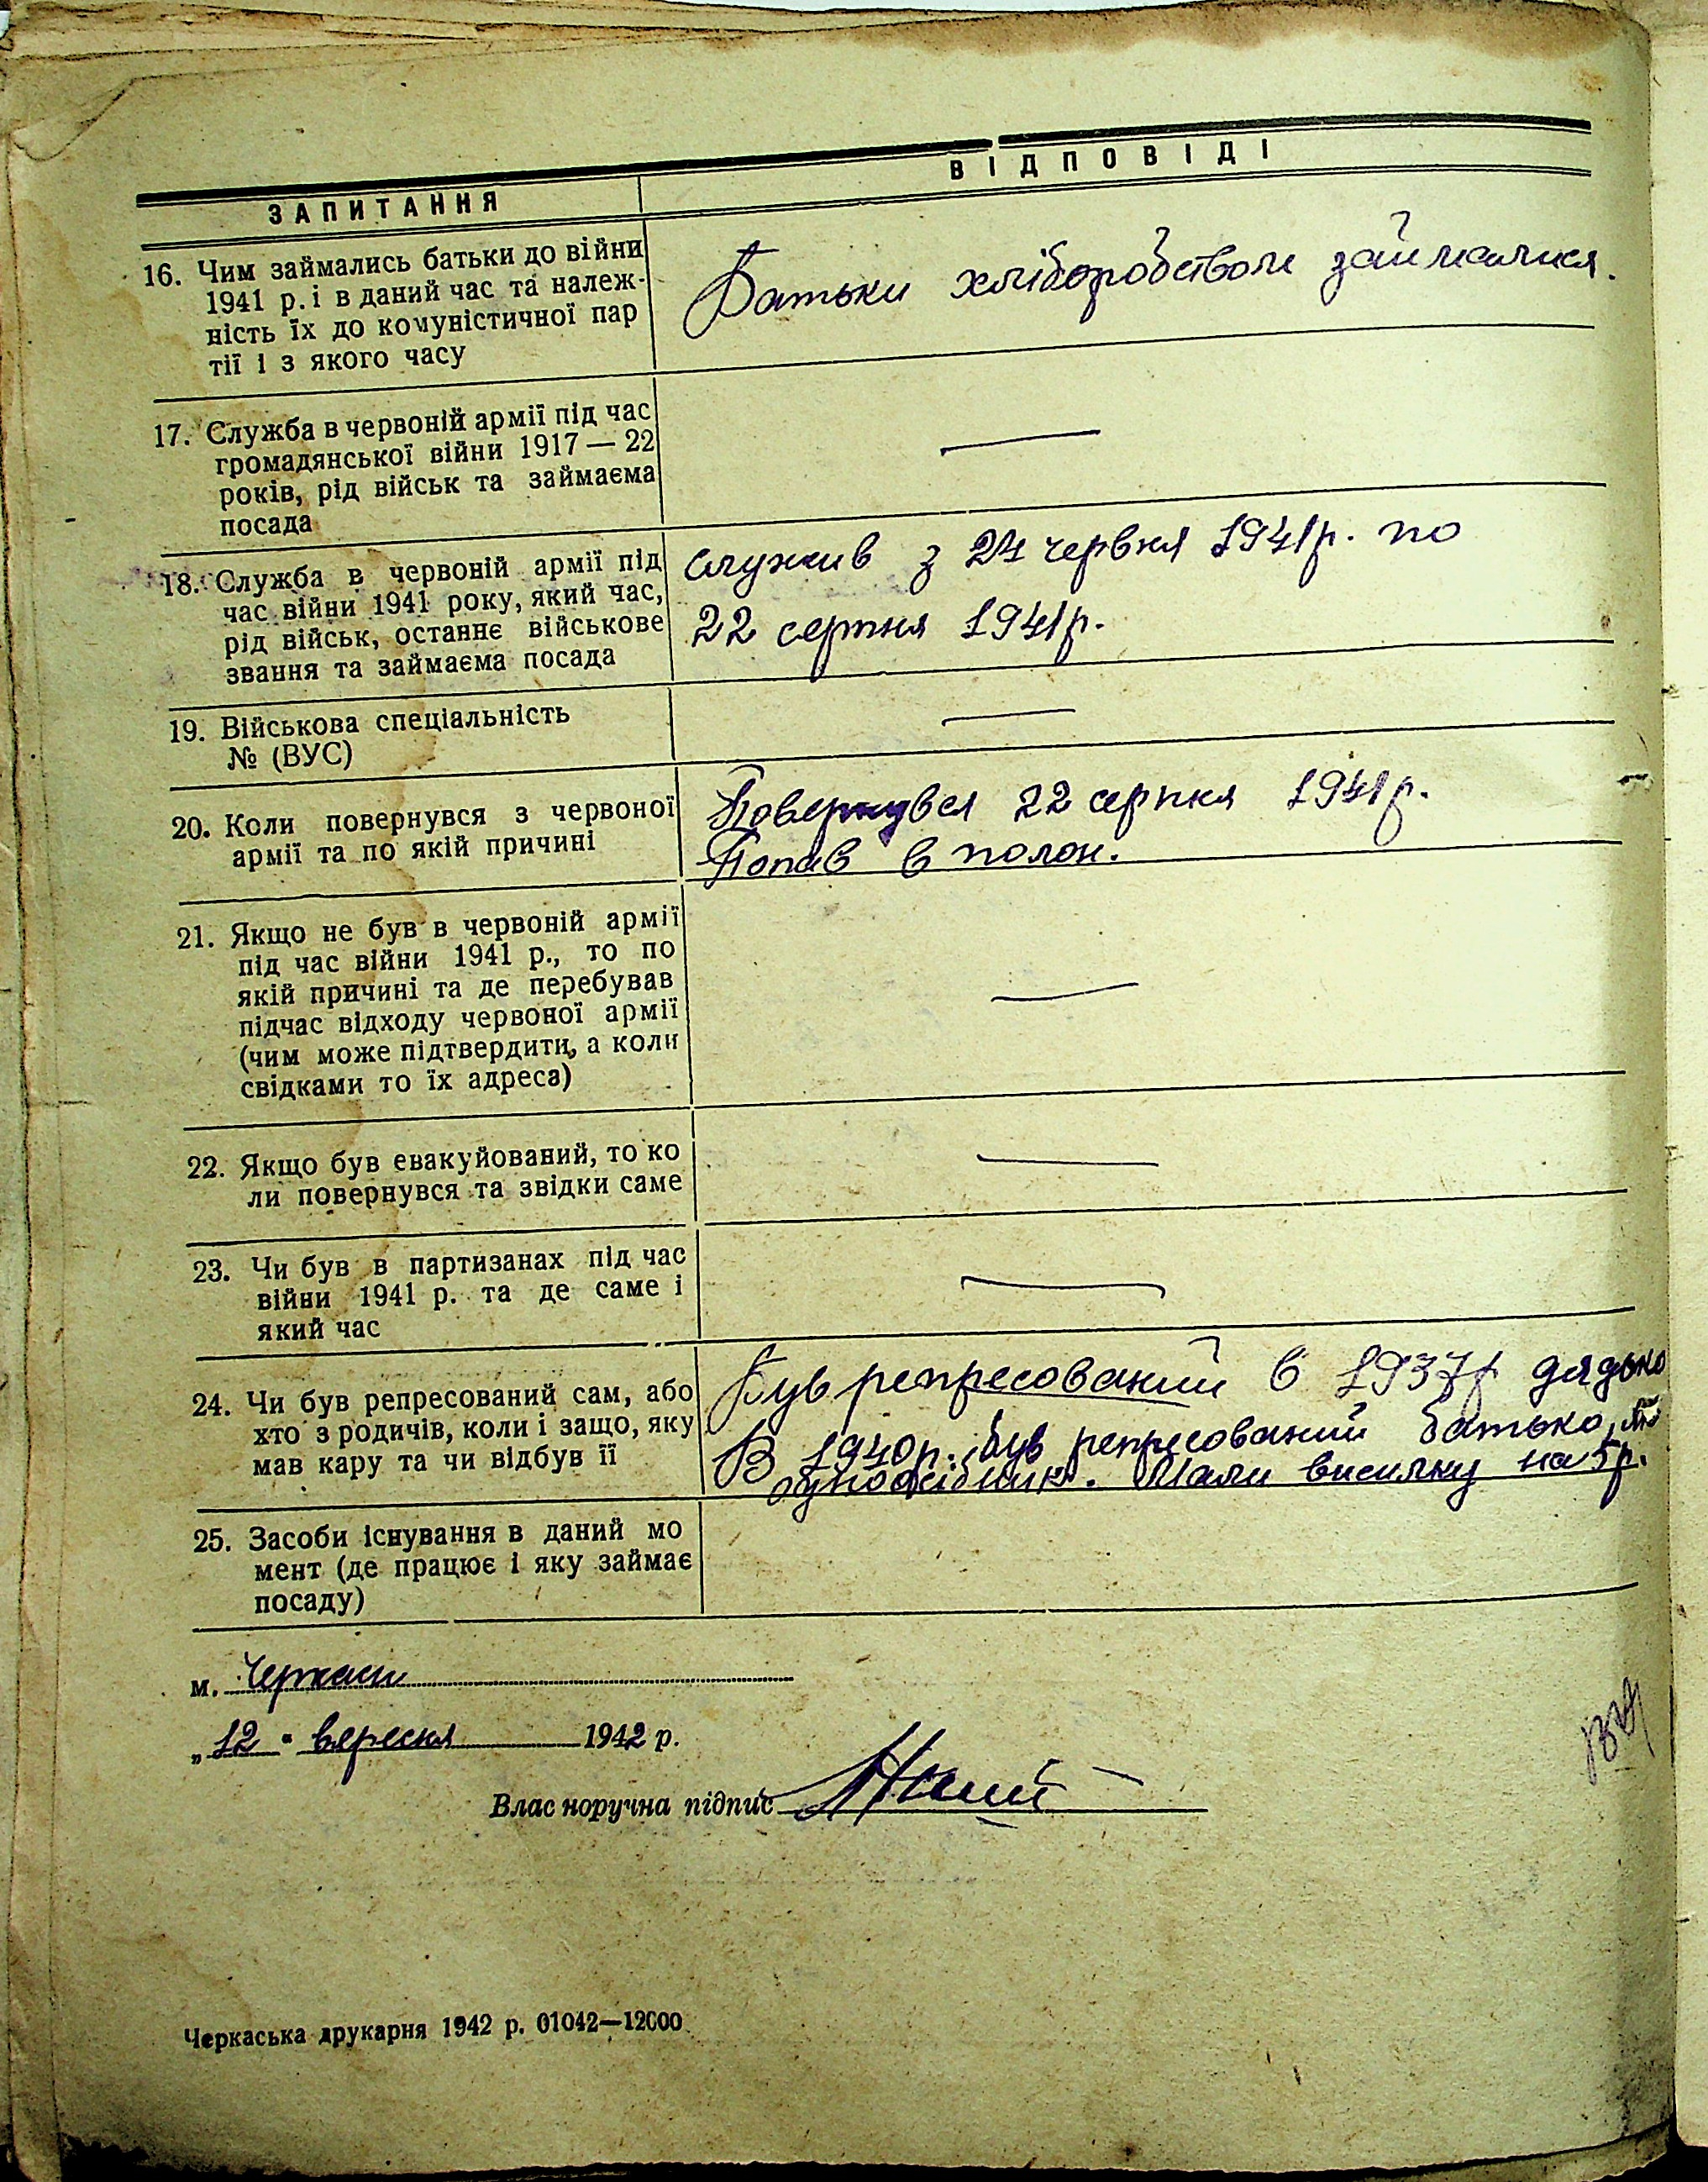 ЗАПИТАННЯ
ВІДПОВІДІ
16. Чим займались батьки до війни
1941 р. і в даний час та належ-
ність їх до комуністичної пар
тії і з якого часу
Батьки хліборобством займалися.
17. Служба в червоній армії під час
громадянської війни 1917—22
років, рід військ та займаєма
посада
18. Служба в червоній армії під
час війни 1941 року, який час,
рід військ, останнє військове
звання та займаєма посада
служив з 24 червня 1941р. по
22 серпня 1941р.
19. Військова спеціальність
№ (ВУС)
20. Коли повернувся з червоної
армії та по якій причині
Повернувся 22 серпня 1941р.
Попав в полон.
21. Якщо не був в червоній армії
під час війни 1941 р., то по
якій причині та де перебував
підчас відходу червоної армії
(чим може підтвердити, а коли
свідками то їх адреса)
22. Якщо був евакуйований, то ко
ли повернувся та звідки саме
23. Чи був в партизанах під час
війни 1941 р. та де саме і
який час
24. Чи був репресований сам, або
хто з родичів, коли і защо, яку
мав кару та чи відбув її
Був репресований в 1937р дядько
В 1940р. був репресований батько,
Мали висилку на 5р.
25. Засоби існування в даний мо
мент (де працює і яку займає
посаду)
м. Черкаси
„12" вересня 1942 р.
Власноручна підпис
Черкаська друкарня 1942 р. 01042—12000